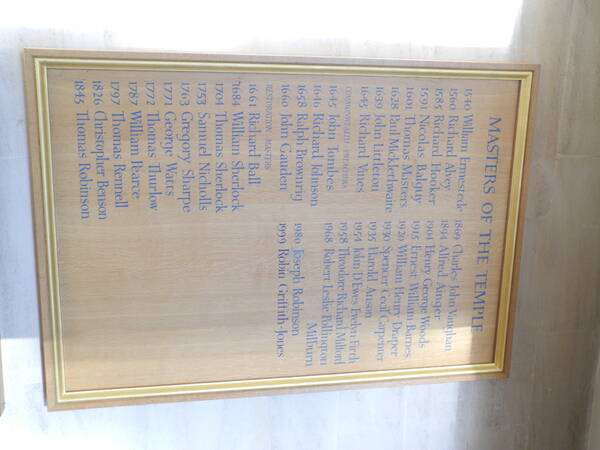 MASTERS OF THE TEMPLE
1540 William Ermestede
1560 Richard Alvey
1585 Richard Hooker
1591 Nicolas Balguy
1601 Thomas Masters
1628 Paul Micklethwaite
1639 John Littleton
1645 Richard Vines
COMMONWEALTH PREACHERS
1645 John Tombes
1646 Richard Johnson
1658 Ralph Brownrig
1660 John Gauden
RESTORATION MASTERS
1661 Richard Ball
1684 William Sherlock
1704 Thomas Sherlock
1753 Samuel Nicholls
1763 Gregory Sharpe
1771 George Watts
1772 Thomas Thurlow
1787 William Pearce
1797 Thomas Rennell
1826 Christopher Benson
1845 Thomas Robinson
1869 Charles John Vaughan
1894 Alfred Ainger
1904 Henry George Woods
1915 Ernest William Barnes
1920 William Henry Draper
1930 Spencer Cecil Carpenter
1935 Harold Anson
1954 John D'Ewes Evelyn Firth
1958 Theodore Richard Milford
1968 Robert Leslie Pollington
Milburn
1980 Joseph Robinson
1999 Robin Griffith-Jones